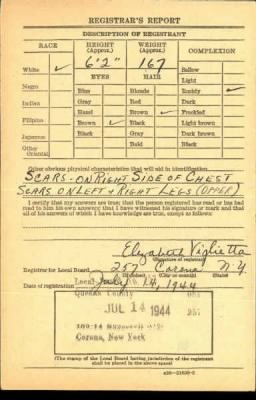 REGISTRAR'S REPORT
DESCRIPTION OF REGISTRANT
RACE HEIGHT (Approx.) WEIGHT (Approx.) COMPLEXION
White ✓ 6'2" 167 Sallow
Light
EYES HAIR Ruddy ✓
Negro Blue Blonde Dark
Indian Gray Red Freckled
Filipino Hazel Brown ✓ Light brown
Japanese Brown ✓ Black Dark brown
Other Oriental Black Gray Black
Bald
Other obvious physical characteristics that will aid in identification
SCARS - ON RIGHT SIDE OF CHEST
SCARS ON LEFT + RIGHT LEGS (UPPER)
I certify that my answers are true; that the person registered has read or has had
read to him his own answers; that I have witnessed his signature or mark and that
all of his answers of which I have knowledge are true, except as follows:
Elizabeth Viglietta
(Signature of registrar)
Registrar for Local Board 257 Corona N.Y.
(State)
Date of registration July 14, 1944
Local Board
Queens County
JUL 14 1944 257
Corona, New York
(The stamp of the Local Board having jurisdiction of the registrant
shall be placed in the above space)